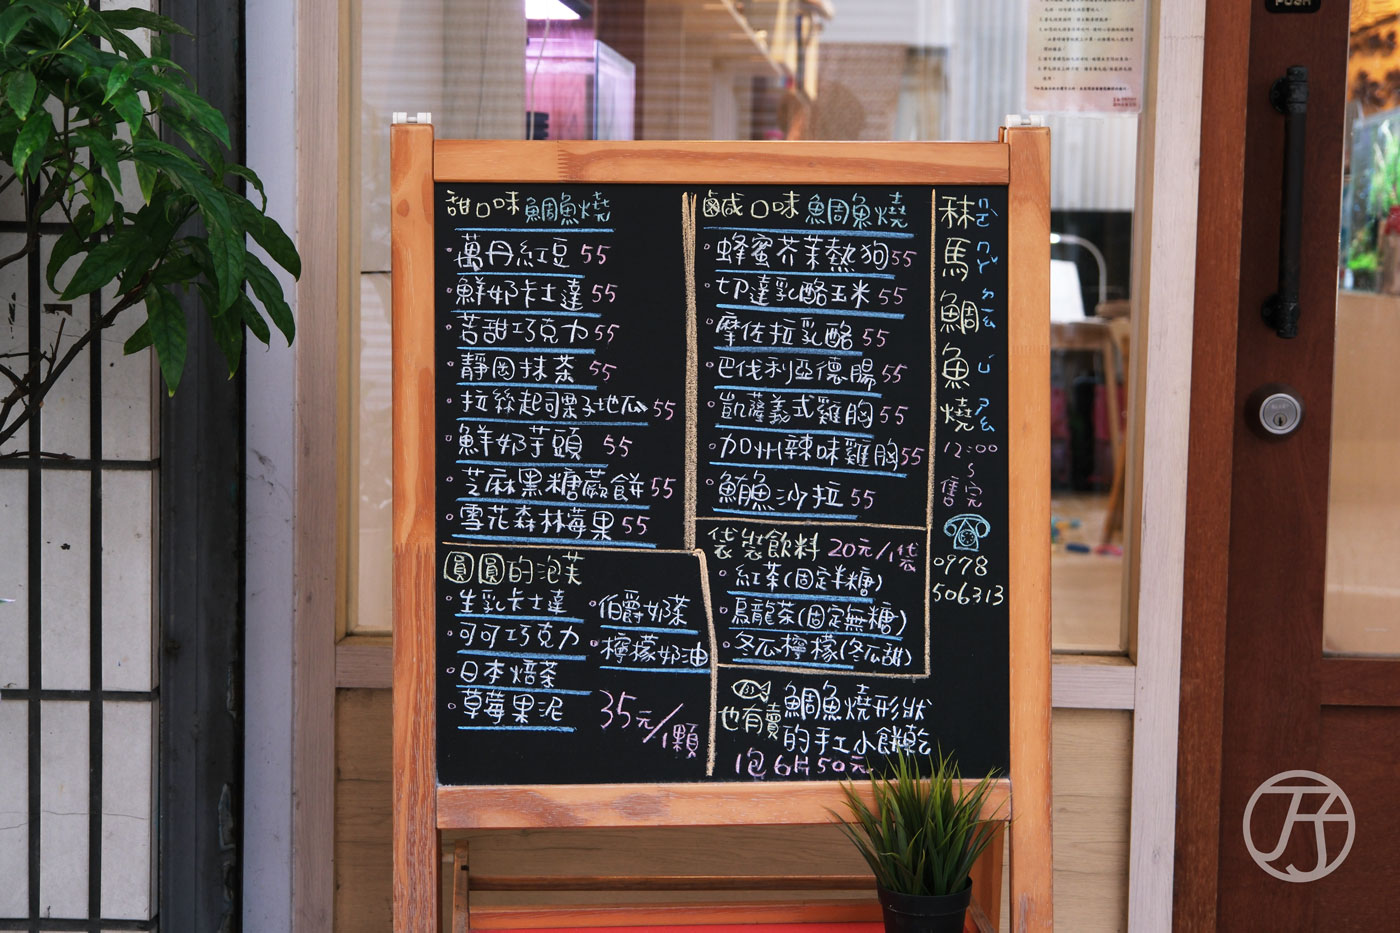 甜口味鯛魚燒
·萬丹紅豆 55
·鮮奶卡士達 55
·苦甜巧克力 55
·靜岡抹茶 55
·拉絲起司栗子地瓜 55
·鮮奶芋頭 55
·芝麻黑糖蕨餅 55
·雪花森林莓果 55
圓圓的泡芙
·生乳卡士達
·可可巧克力
·日本焙茶
·草莓果泥
·伯爵奶茶
·檸檬奶油
35元/1顆
鹹口味鯛魚燒
·蜂蜜芥茉熱狗 55
·切達乳酪玉米 55
·摩佐拉乳酪 55
·巴伐利亞德腸 55
·凱薩義式雞胸 55
·加州辣味雞胸 55
·鮪魚沙拉 55
袋裝飲料 20元/1袋
·紅茶(固定半糖)
·烏龍茶(固定無糖)
·冬瓜檸檬(冬瓜甜)
也有賣鯛魚燒形狀
的手工小餅乾
1包6片50元
秣馬鯛魚燒
12:00
售完
0978
506313
PUSH